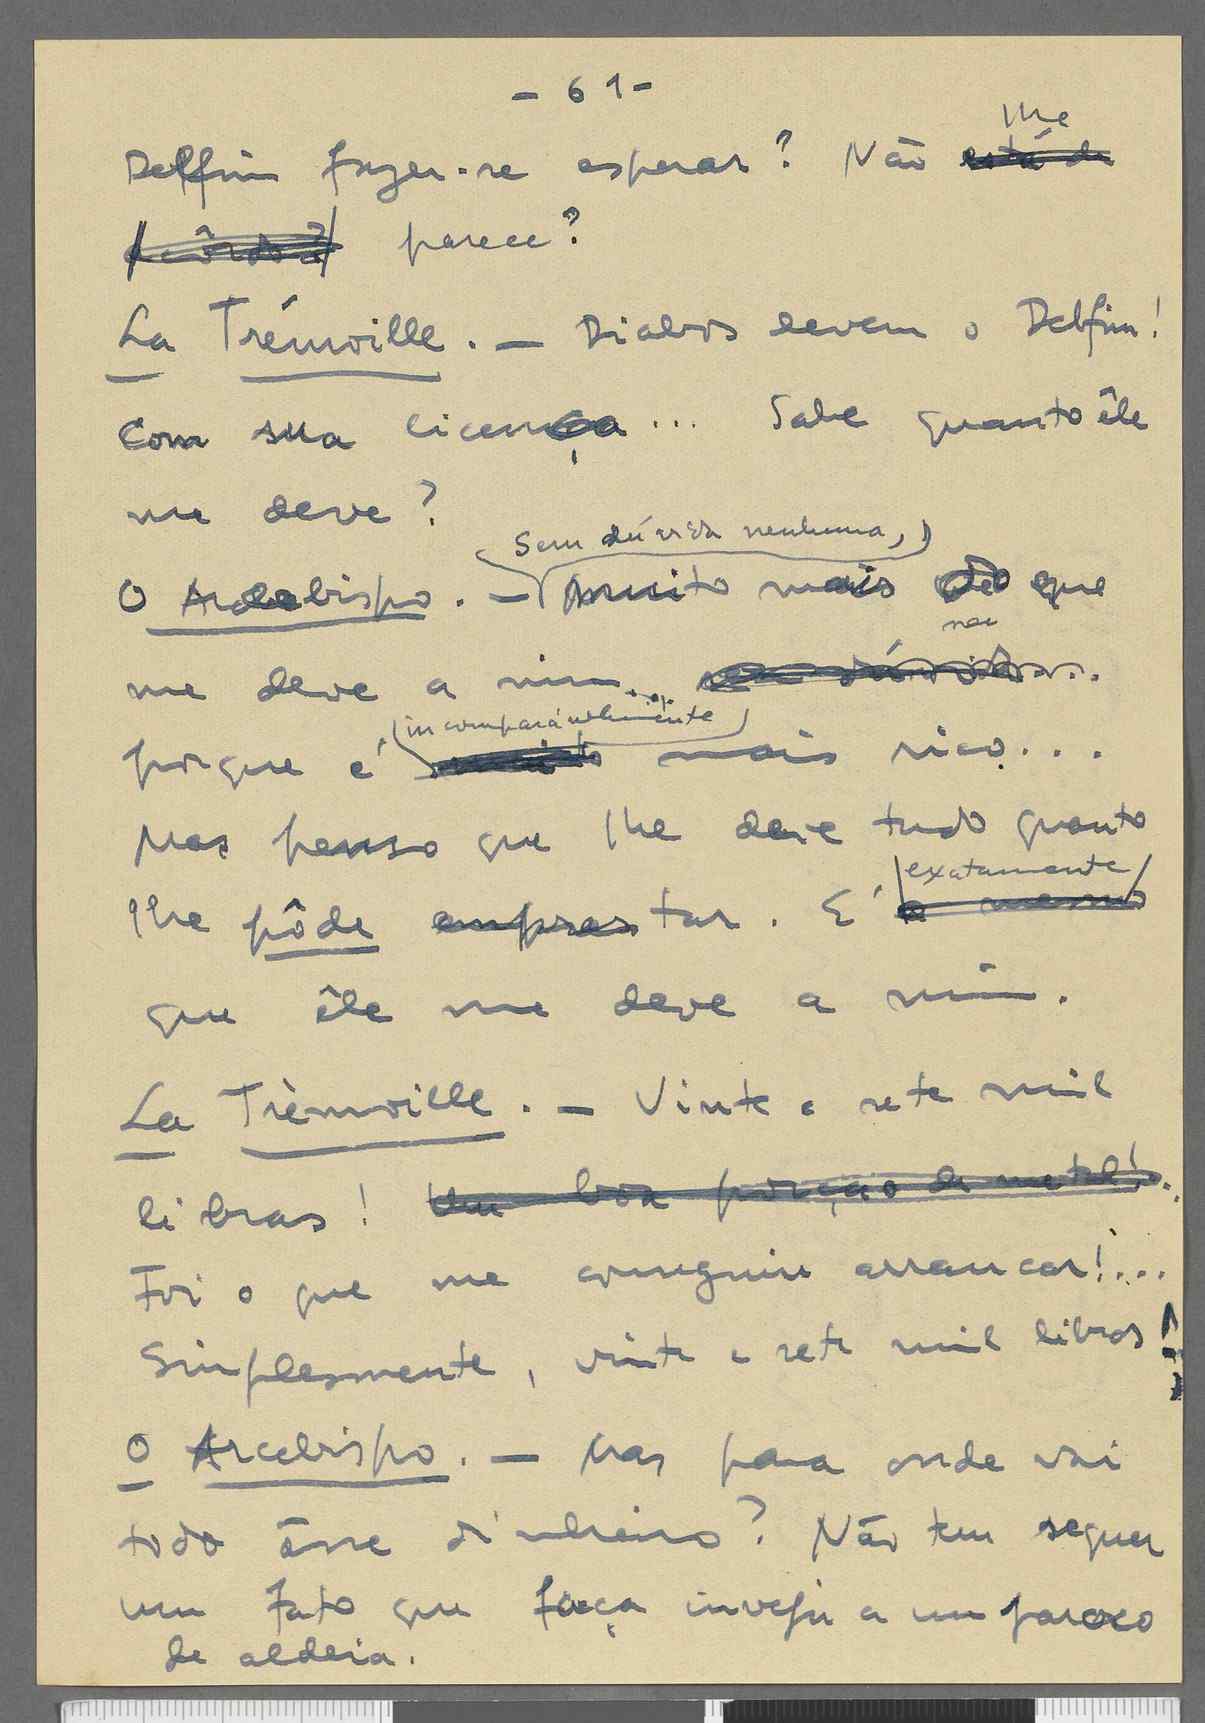 - 61 -
lhe
Delfim fazer-se esperar? Não está de
acôrdo? parece?
La Trémoille. — Diabos levem o Delfim!
Com sua licença... Sabe quanto êle
me deve?
Sem dúvida nenhuma,
O Arcebispo. — Muito mais do que
me deve a mim...
incomparávelmente
porque é muito mais rico...
Mas penso que lhe deve tudo quanto
exatamente
lhe pôde emprestar. É o mesmo
que êle me deve a mim.
La Trèmoille. — Vinte e sete mil
libras! Um boa porção de metal!...
Foi o que me conseguiu arrancar!...
Simplesmente, vinte e sete mil libras!
O Arcebispo. — Mas para onde vai
todo êsse dinheiro? Não tem sequer
um fato que faça inveja a um paroco
de aldeia.